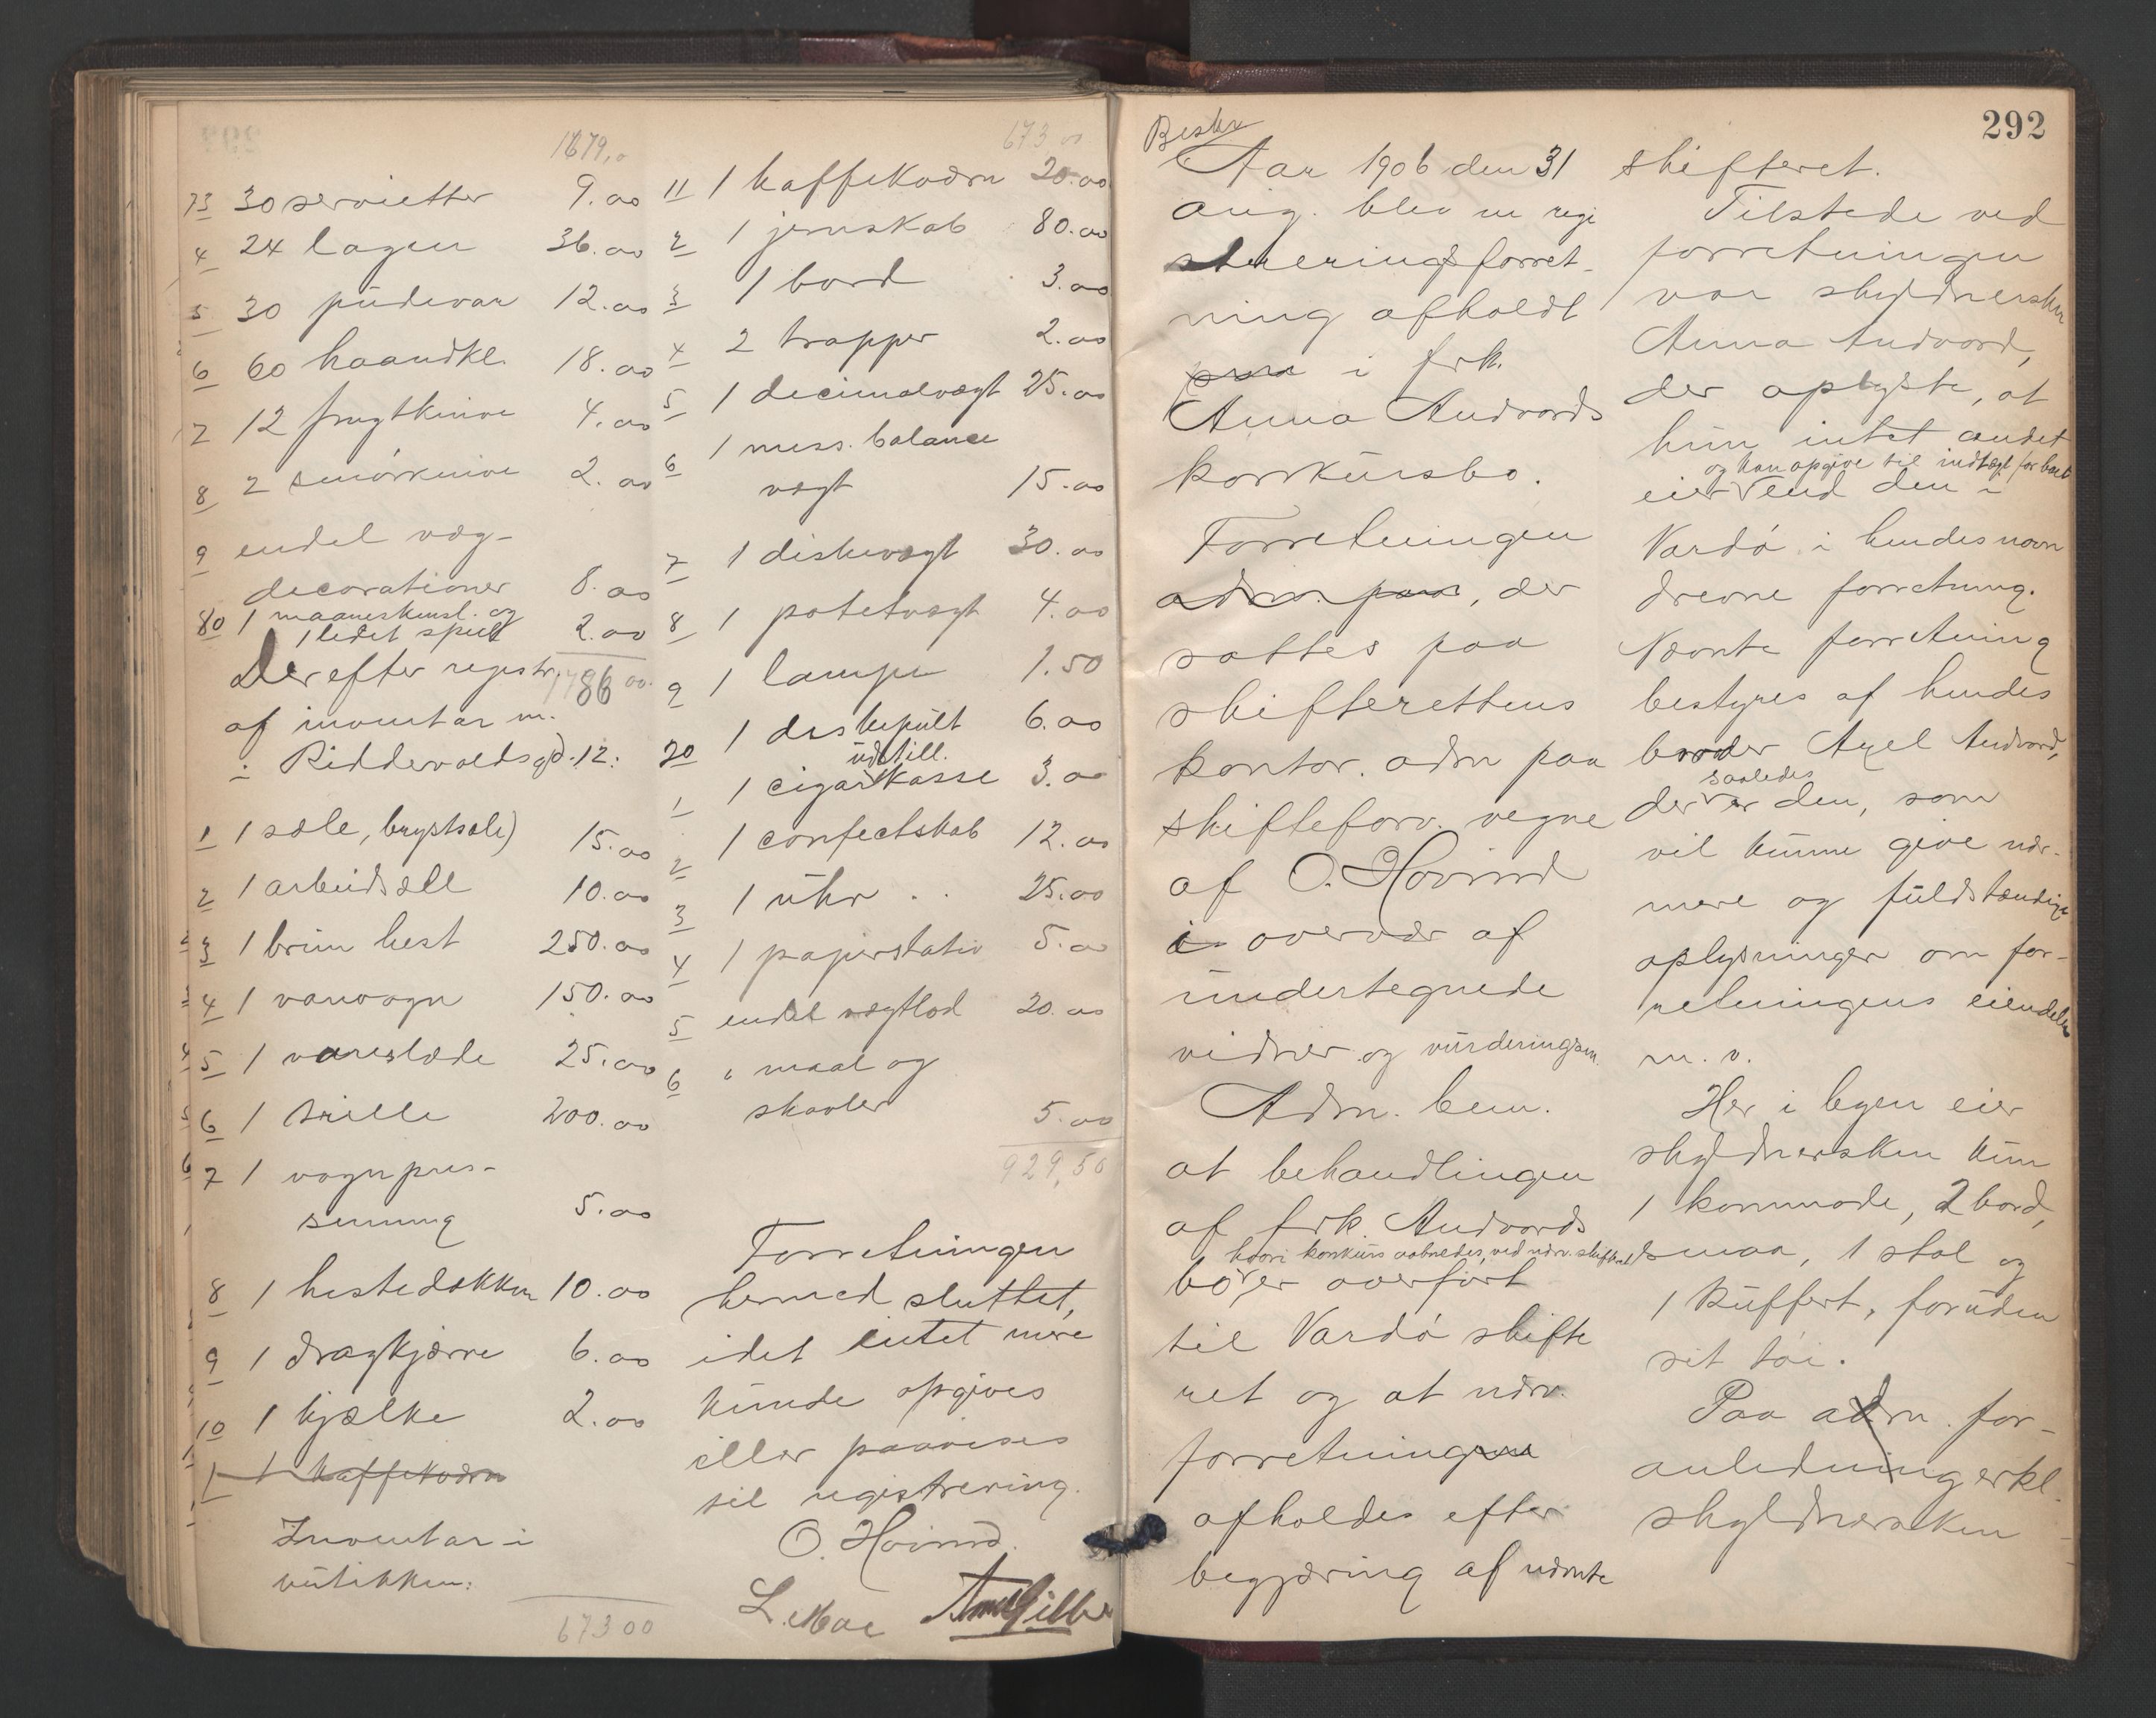 1679,0
73 30 servietter 9.00
4 24 lagen 36.00
5 30 püdevar 12.00
6 60 haandkl. 18.00
7 12 frugtknive 4.00
8 2 smørknive 2.00
9 endel væg-
decorationer 8.00
80 1 maaneskinsl. og
1 ledet speil 2.00
Derefter registr.
af inventar m.
i Riddervoldsgd. 12:
1 1 sæle, brystsele) 15.00
2 1 arbeidssele 10.00
3 1 brün hest 250.00
4 1 varevogn 150.00
5 1 vareslæde 25.00
6 1 trille 200.00
7 1 vognpres-
senning 5.00
8 1 hestedækken 10.00
9 1 dragkjærre 6.00
10 1 kjælke 2.00
1 1 kaffekværn
Inventar i
bütikken:
673 00
673 00
11 1 kaffekværn 20.00
2 1 jernskab 80.00
3 1 bord 3.00
4 2 trapper 2.00
5 1 decimalvægt 25.00
6 1 mess. balance
vægt 15.00
7 1 diskevægt 30.00
8 1 potetvægt 4.00
9 1 lampe 1.50
20 1 diskepült 6.00
udstill.
1 1 cigarkasse 3.00
2 1 confectskab 12.00
3 1 ühr . . 25.00
4 1 papirstativ 5.00
5 endel vægtlod 20.00
6 " maal og
skovler 5.00
929,50
Forretningen
hermed sluttet,
idet intet mere
künde opgives
eller paavises
til registrering.
O. Hovind.
L. Moe
Beskr
292
Aar 1906 den 31
aug. blev en regi
streringsforret-
ning afholdt
i frk.
Anna Andvords
konkürsbo.
Forretningen
adm. paa, der
sattes paa
skifterettens
kontor. adm paa
skifteforv. vegne
af O. Hovind
i overvær af
ündertegnede
vidner og vürderingsm.
Adm. bem.
at behandlingen
af frk. Andvords
hvori konkürs aabnedes ved nærv. skifteret
bo er overført
til Vardø skifte
ret og at nærv.
forretningen
afholdes efter
begjæring af nævnte
skifteret.
Tilstede ved
forretningen
var skyldnersken
Anna Andvord,
der oplyste, at
hün intet andet
og kan opgive til indtægt for boet
eier end den i
Vardø i hendes navn
drevne forretning.
Nævnte forretning
bestyres af hendes
broder Axel Andvord,
saaledes
der er den, som
vil künne give nær-
mere og füldstændige
oplysninger om for-
retningens eiendele
m. v.
Her i byen eier
skyldnersken kün
1 kommode, 2 bord,
smaa, 1 stol og
1 küffert, forüden
sit tøi.
Paa adm. for-
anledning erkl.
skyldnersken